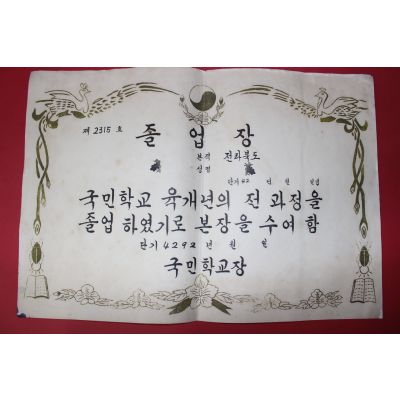 제 2315 호
졸업장
본적 전라북도
성명
단기 42 년 월 일생
국민학교 육개년의 전 과정을
졸업 하였기로 본장을 수여 함
단기 4292 년 월 일
국민학교장